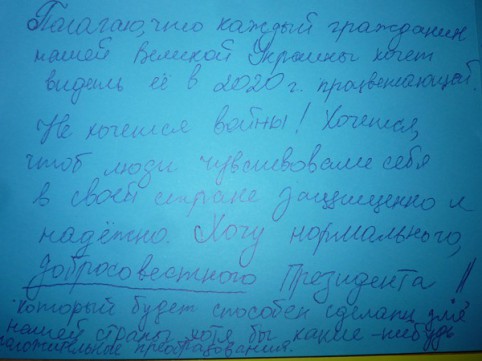 Полагаю, что каждый гражданин
нашей Великой Украины хочет
видеть её в 2020 г. процветающей.
Не хочется войны! Хочется,
чтоб люди чувствовали себя
в своей стране защищенно и
надёжно. Хочу нормального,
добросовестного Президента
который будет способен сделать для
нашей страны хотя бы какие-нибудь
положительные преобразования.